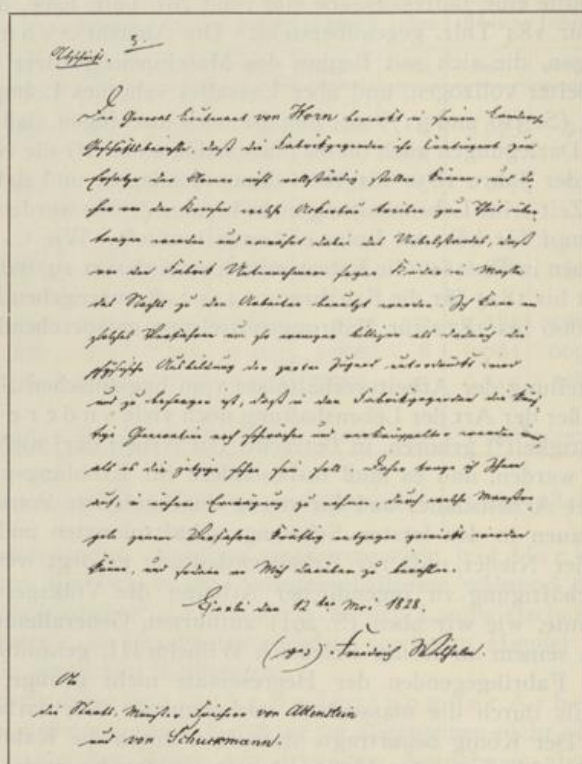 Abschrift.
Der General Lieutenant von Horn bemerkt in seinem Landwehr
Geschäftsberichte, daß die Fabrikgegenden ihr Contingent zum
Ersatze der Armee nicht vollständig stellen können, und da
her von den Kreisen welche Ackerbau treiben zum Theil über
tragen werden und erwähnt dabei des Uebelstandes, daß
von den Fabrik Unternehmern sogar Kinder in Masse
des Nachts zu den Arbeiten benutzt werden. Ich kann ein
solches Verfahren um so weniger billigen als dadurch die
physische Ausbildung der zarten Jugend unterdrückt wird
und zu besorgen ist, daß in den Fabrikgegenden die künf
tige Generation noch schwächer und verkrüppelter werden
als es die jetzige schon sein soll. Daher trage ich Ihnen
auf, in nähere Erwägung zu nehmen, durch welche Maaßre
geln jenem Verfahren kräftig entgegen gewirkt werden
könne, und sodann an Mich darüber zu berichten.
Berlin den 12ten Mai 1828.
(gez). Friedrich Wilhelm.
An
die Staats Minister Freiherr von Altenstein
und von Schuckmann.